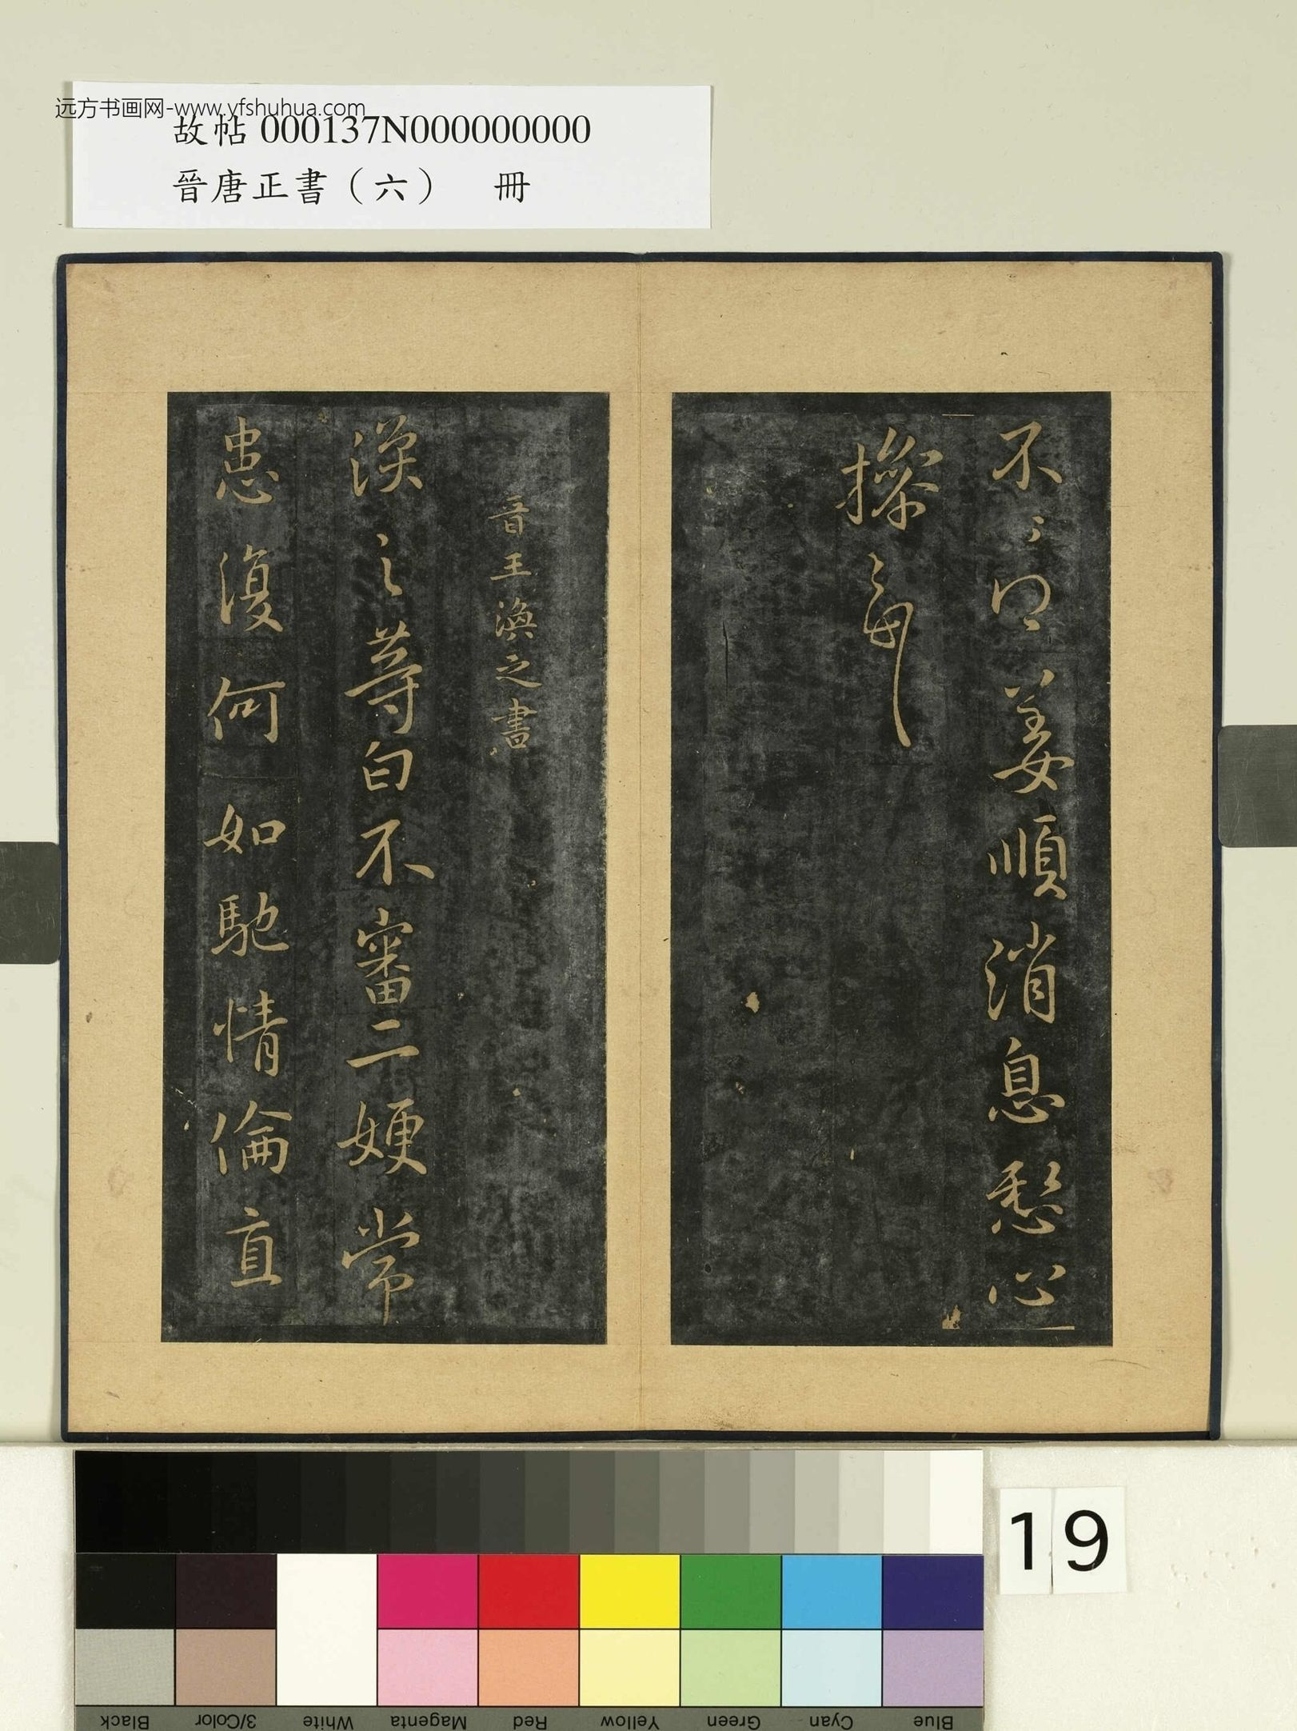 远方书画网-www.yfshuhua.com
故帖 000137N000000000
晉唐正書（六） 冊
不
姜順消息愁心
操
晉王渙之書
渙之等白不審二嫂常
患復何如馳情倫直
19
Black
3/Color
White
Magenta
Red
Yellow
Green
Cyan
Blue